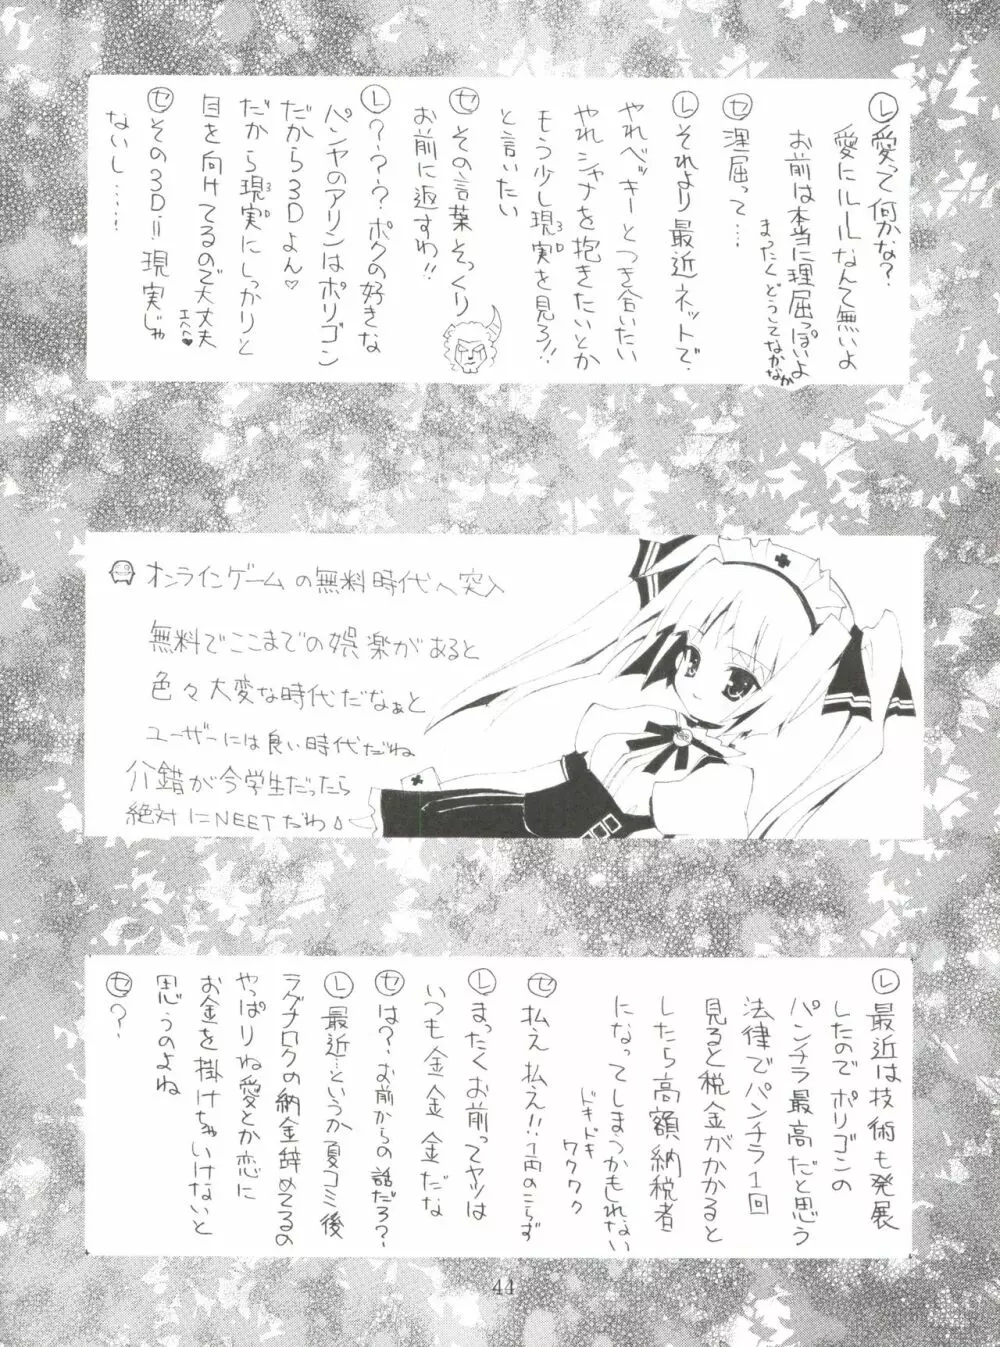 Ⓛ愛って何かな?
愛にルールなんて無いよ
お前は本当に理屈っぽいよ
まったくどうしてなかなか
セ 理屈って…
Ⓛそれより最近ネットで
やれベッキーとつき合いたい
やれシャナを抱きたいとか
もう少し現実を見ろ!!
3D
と言いたい
セ その言葉そっくり
お前に返すわ!!
Ⓛ???ボクの好きな
パンヤのアリンはポリゴン
だから3Dよん♡
だから現実にしっかりと
3D
目を向けてるので大丈夫
エヘヘ♥
セ その3D=現実じゃ
ないし……
オンラインゲームの無料時代へ突入
無料でここまでの娯楽があると
色々大変な時代だなぁと
ユーザーには良い時代だね
介錯が今学生だったら
絶対にNEETだわ
Ⓛ最近は技術も発展
したのでポリゴンの
パンチラ最高だと思う
法律でパンチラ1回
見ると税金がかかると
したら高額納税者
になってしまうかもしれない
ドキドキ
ワクワク
セ 払え払え!!1円のこらず
Ⓛまったくお前ってヤツは
いつも金金金だな
セ は?お前からの話だろ?
Ⓛ最近…というか夏コミ後
ラグナロクの納金辞めてるの
やっぱりね愛とか恋に
お金を掛けちゃいけないと
思うのよね
セ ?
44